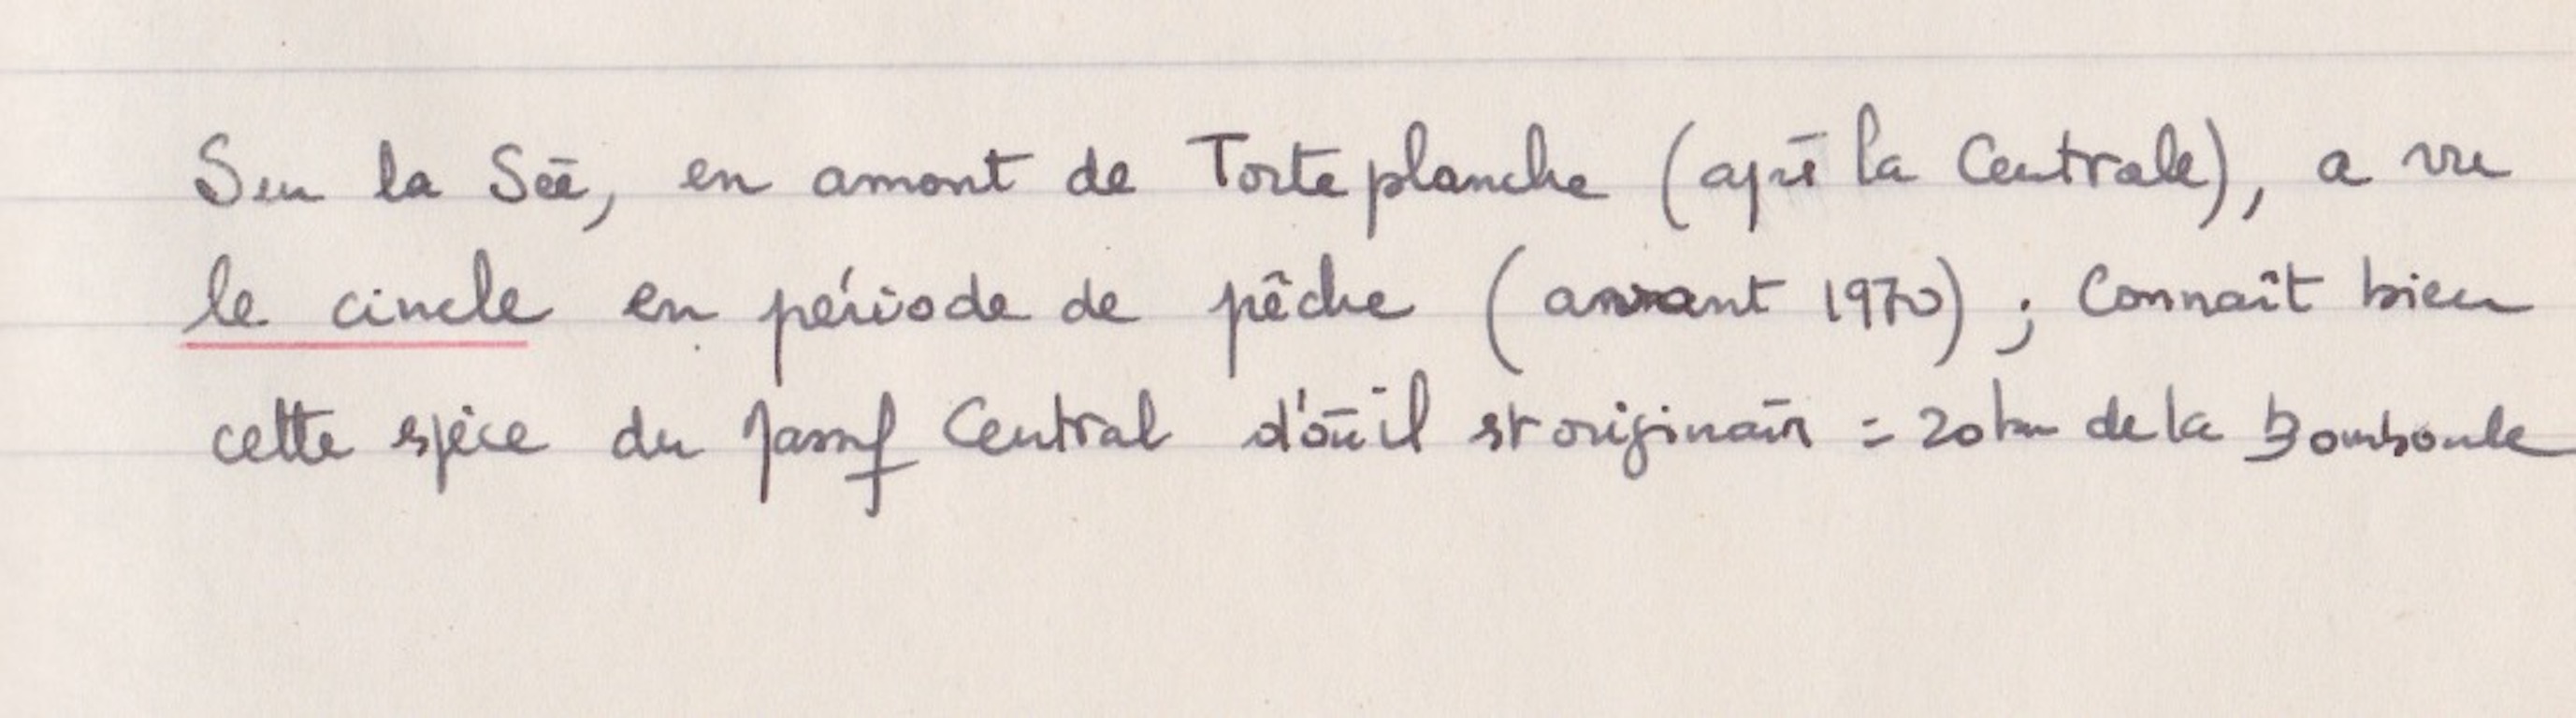 Sur la Sée, en amont de Torteplanche (après la Centrale), a vu
le cincle en période de pêche (avant 1970) ; Connaît bien
cette espèce du Massif Central d'où il est originaire = 20 km de la Bourboule